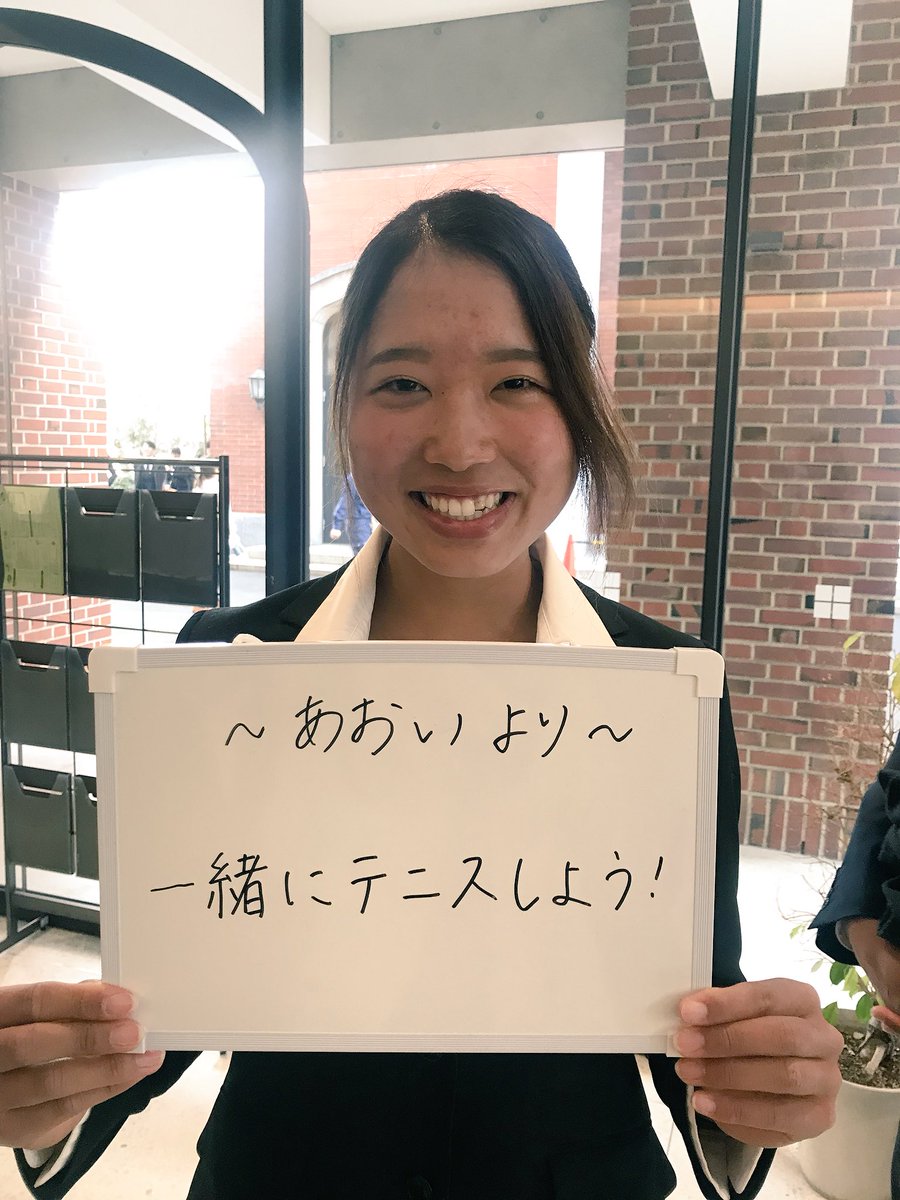 ～あおいより～
一緒にテニスしよう!